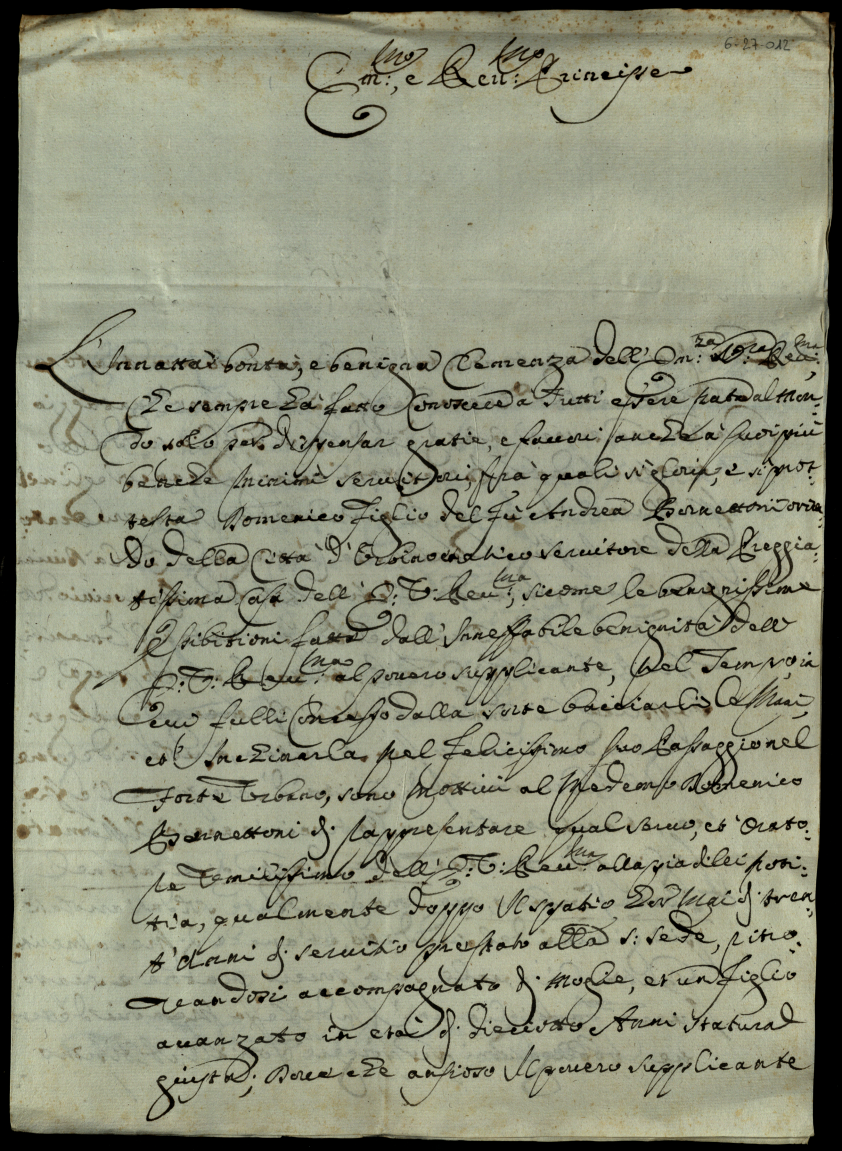 6-27-012
Em:mo, e Reu:mo Principe
L'Innatta bontà, e benigna Clemenza dell'Em:za V:ra Reu:ma,
che sempre hà fatto Conoscere à Tutti essere nata al Mon:
do solo per dispensar gratie, e fauori anche à suoi più
benche minimi seruitori frà quali si gloria, e si prot:
testa Domenico Figlio del fù Andrea Bernettoni oriu:
do della Città d'Urbino anticο seruitore della Preggia:
tissima Casa dell'E:V:Reu:ma, sicome le benignissime
Essibitioni fatte dall'Ineffabile benignità dell'
E:V:Reu:ma al pouero supplicante, nel Tempo, in
cui fulli Concesso dalla sorte bacciarli le Mani,
et Inchinarla nel felicissimo suo Passaggio nel
Forte Urbano, sono mottiui al Medemo Domenico
Bernettoni di rappresentare qual seruo, et Orato:
re Umilissimo dell'E:V:Reu:ma alla pia di lei noti:
tia, qualmente doppo Il spatio hor mai di tren:
t'anni di seruitio prestato alla S: Sede, ritro:
uandosi accompagnato di Moglie, et un figlio
auanzato in età di dieciotto Anni statura
giusta; Doue che ansioso Il pouero supplicante